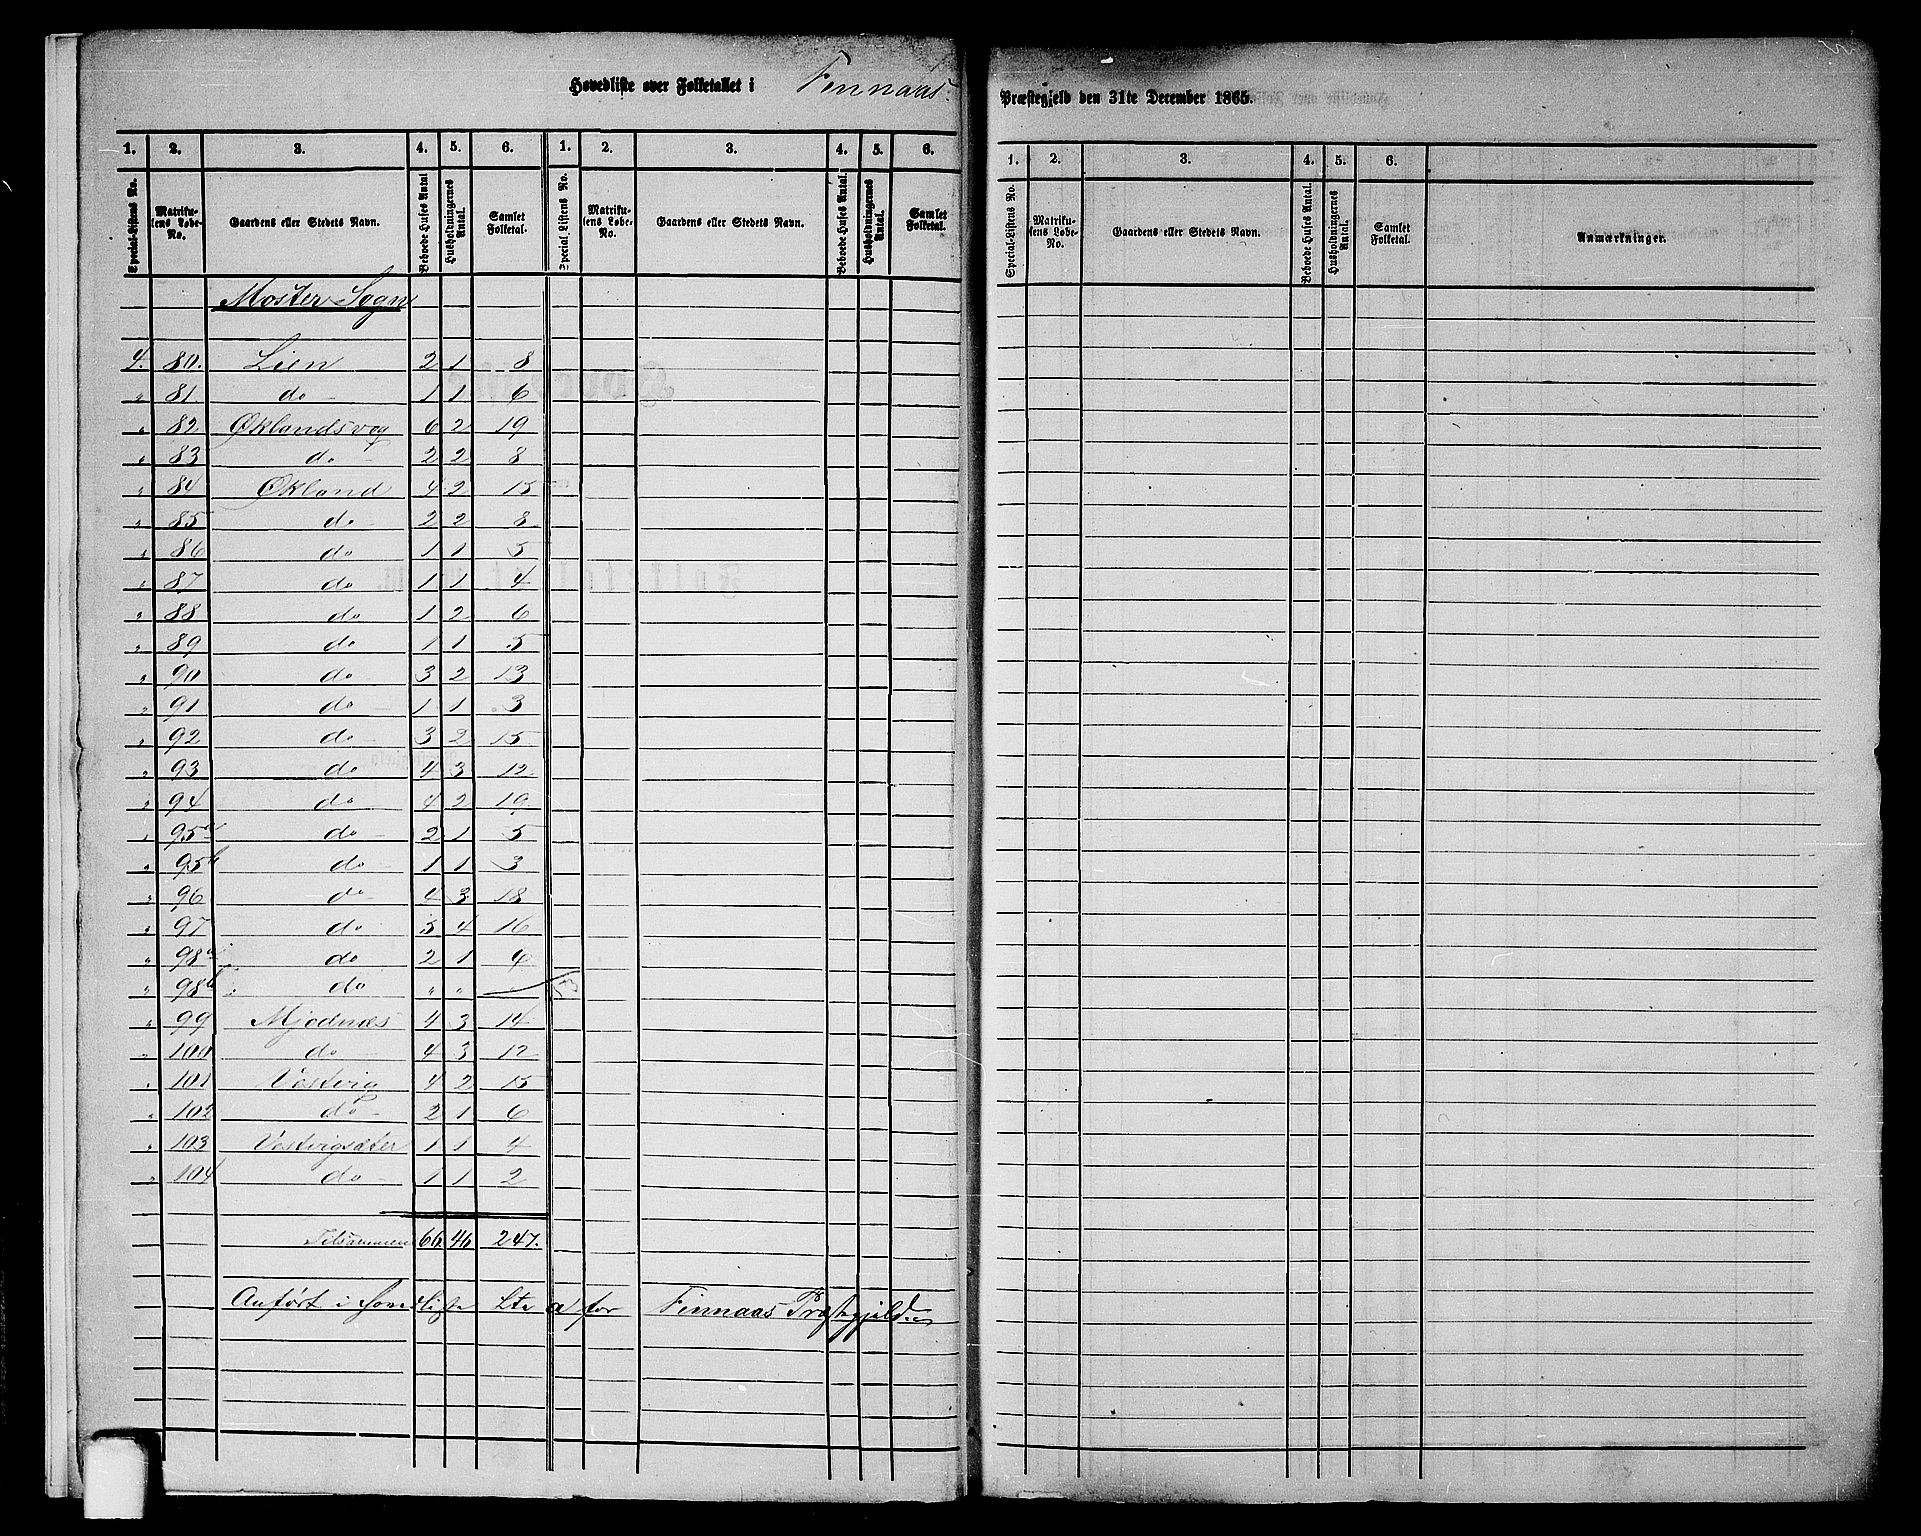 Hovedliste over Folketallet i Finnaas Præstegjeld den 31te December 1865.
1. 2. 3. 4. 5. 6. 1. 2. 3. 4. 5. 6. 1. 2. 3. 4. 5. 6.
Special-Listens No. Matrikulens Løbe-No. Gaardens eller Stedets Navn. Beboede Huses Antal Husholdningernes Antal. Samlet Folketal. Special-Listens No. Matrikulens Løbe-No. Gaardens eller Stedets Navn. Beboede Huses Antal. Husholdningernes Antal. Samlet Folketal. Special-Listens No. Matrikulens Løbe-No. Gaardens eller Stedets Navn. Beboede Huses Antal. Husholdningernes Antal. Samlet Folketal. Anmærkninger.
Moster Sogn
4. 80. Lien 2 1 8
" 81. do 1 1 6
" 82 Øklandsvog 6 2 19
" 83 do 2 2 8
" 84 Økland 4 2 15
" 85 do 2 2 8
" 86 do 1 1 5
" 87 do 1 1 4
" 88 do 1 2 6
" 89 do 1 1 5
" 90 do 3 2 13
" 91 do 1 1 3
" 92 do 3 2 15
" 93 do 4 3 12
" 94 do 4 2 19
" 95a do 2 1 5
" 95b do 1 1 3
" 96 do 4 3 18
" 97 do 5 4 16
" 98a do 2 1
" 98b do " "
" 99 Mjødnæs 4 3 14
" 100 do 4 3 12
" 101 Vestvig 4 2 15
" 102 do 2 1 6
" 103 Vestvigsæter 1 1 4
" 104 do 1 1 2
Tilsammen 66 46 247.
Anført i Hovedliste Ltr a for Finnaas Præstegjeld.